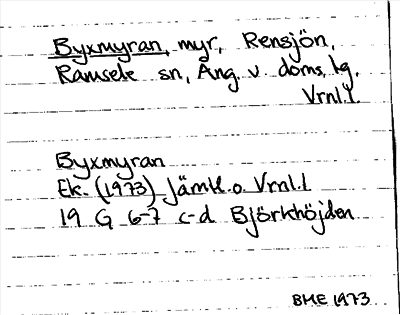 Byxmyran, myr, Rensjön,
Ramsele sn, Ång. v. doms. lg.
Vrnl. l.
Byxmyran
Ek. (1973) Jämtl. o. Vrnl. l
19 G 6-7 c-d Björkhöjden
BME 1973